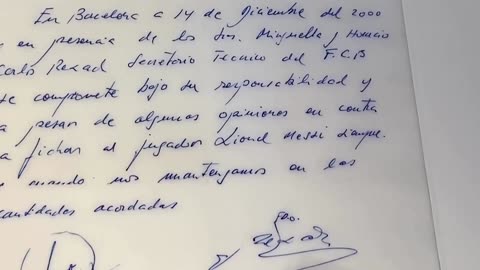 En Barcelona a 14 de Diciembre del 2000
en presencia de los Srs. Minguella y Horacio
Carlo Rexach Secretario Tecnico del F.C.B
se compromete bajo su responsabilidad y
a pesar de algunas opiniones en contra
a fichar al jugador Lionel Messi siempre
mando nos mantengamos en las
cantidades acordadas